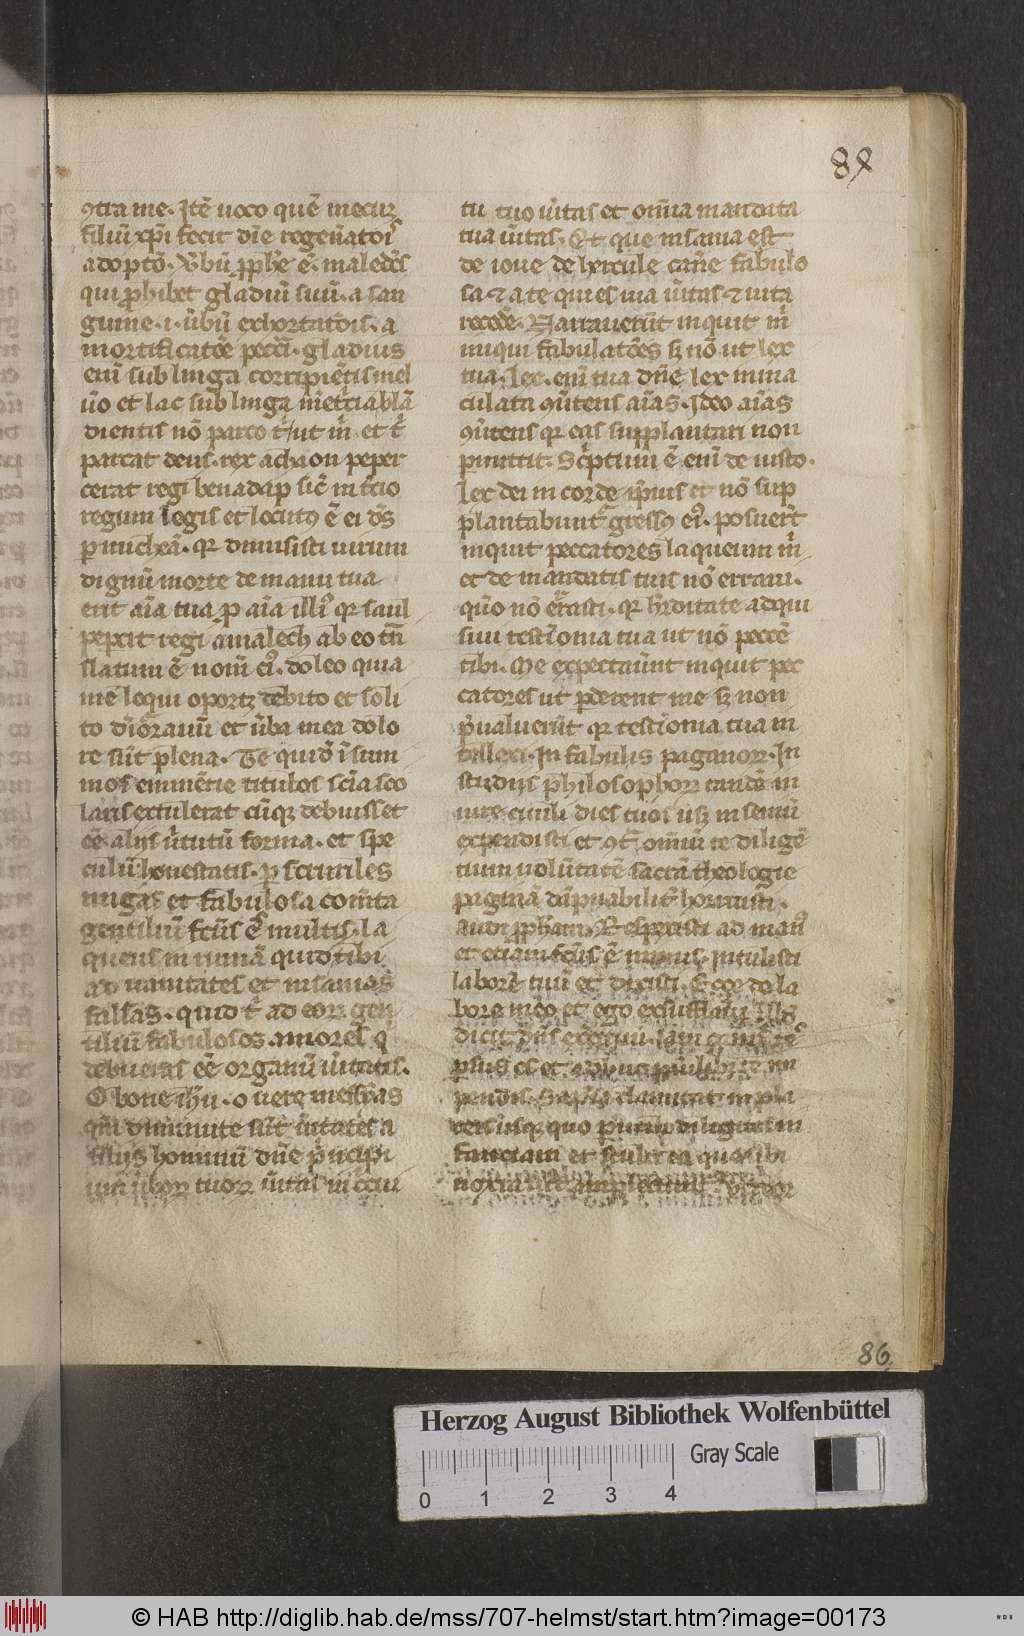 88
ꝯtra me. Itē uoco quē mecuꝝ
filiū xp̄i fecit dīe regen̄atoīs
adoptō. Vbū ꝓph̄e ē. maledcs̄
qui ꝓhibet gladiū suū. a san
guine. i. ūbū exhortatōis. a
mortificatōe peccī. gladius
enī sub linga corripiētis mel
ūo et lac sub linga
dientis nō parco t̄ ut m̄ et t̄
parcat deus. rex achaon peper
cerat regi benadap sic̄ in t̄cio
regum legis et locutꝰ ē ei dn̄s
ꝑ micheā. qꝛ dimisisti uirum
dignū morte de manu tua
erit aīa tua ꝓ aīa illīꝰ qꝛ saul
pepcit regi amalech ab eo tn̄
slatum ē nom̄ eiꝰ. doleo quia
me loqui oportꝫ debito et soli
to et ūba mea dolo
re sūt plena. Te quidē ī sum
mos eminētie titulos scīa sco
laris extulerat cūqꝫ debuisset
eē alijs ūtutū forma. et spe
culū honestatis. ꝑ scurriles
nugas et fabulosa cōmta
gentiliū fcūs ē multis la
queus in ruinā quid tibi
ad uanitates et insanias
falsas. quid t̄ ad eoꝝ gen
tiliū fabulosos amores q̄
debueras eē organū ūitatis.
O bone ih̄u. o uere messias
qm̄ diminute sūt ūitates a
filijs hominū dn̄e pͥncipi
um ūboꝝ tuoꝝ ūitas
tu tuo ūitas et omīa mandata
tua ūitas. Et que insania est
de ioue de hercule cane fabulo
sa ⁊ a te qui es uia ūitas ⁊ uita
recede. Narrauerūt inquit m̄
iniqui fabulatōes sꝫ nō ut lex
tua. Lex enī tua dn̄e lex inma
culata ꝯūtens aīas. Ideo aīas
ꝯūtens qꝛ eas supplantari non
ꝑmittit. Scͥptum ē enī de iusto.
Lex dei in corde ip̄ius et nō sup
plantabuntͬ gressꝰ eiꝰ. posuerūt
inquit peccatores laqueum m̄
et de mandatis tuis nō erraui.
quō nō errasti. qꝛ h̄editate adqui
siui testīonia tua ut nō peccē
tibi. Me expectauūt inquit pec
catores ut ꝑderent me sꝫ non
p̄ualuerūt qꝛ testīonia tua in
tellexi. In fabulis paganoꝝ. In
studijs philosophoꝝ tandē in
iure ciuili dies tuos usqꝫ in seniū
expendisti et ꝯt̄ omniū te diligē
tium uolūtatē sacrā theologie
paginā dāpnabilit̄ horruisti.
audi ꝓph̄am. Respexisti ad maiꝰ
et etiam fcūs ē minus. intulisti
laborē tuū et dixisti. Ecce de la
bore meo et ego exsufflaui
dicit dn̄s
ꝑsus es et
pendis. Sapīa clamitat in pla
teis usqꝫ quo paruuli diligitis in
fanciam et stulti ea que sibi
noxia sūt
86
Herzog August Bibliothek Wolfenbüttel
Gray Scale
0 1 2 3 4
© HAB http://diglib.hab.de/mss/707-helmst/start.htm?image=00173